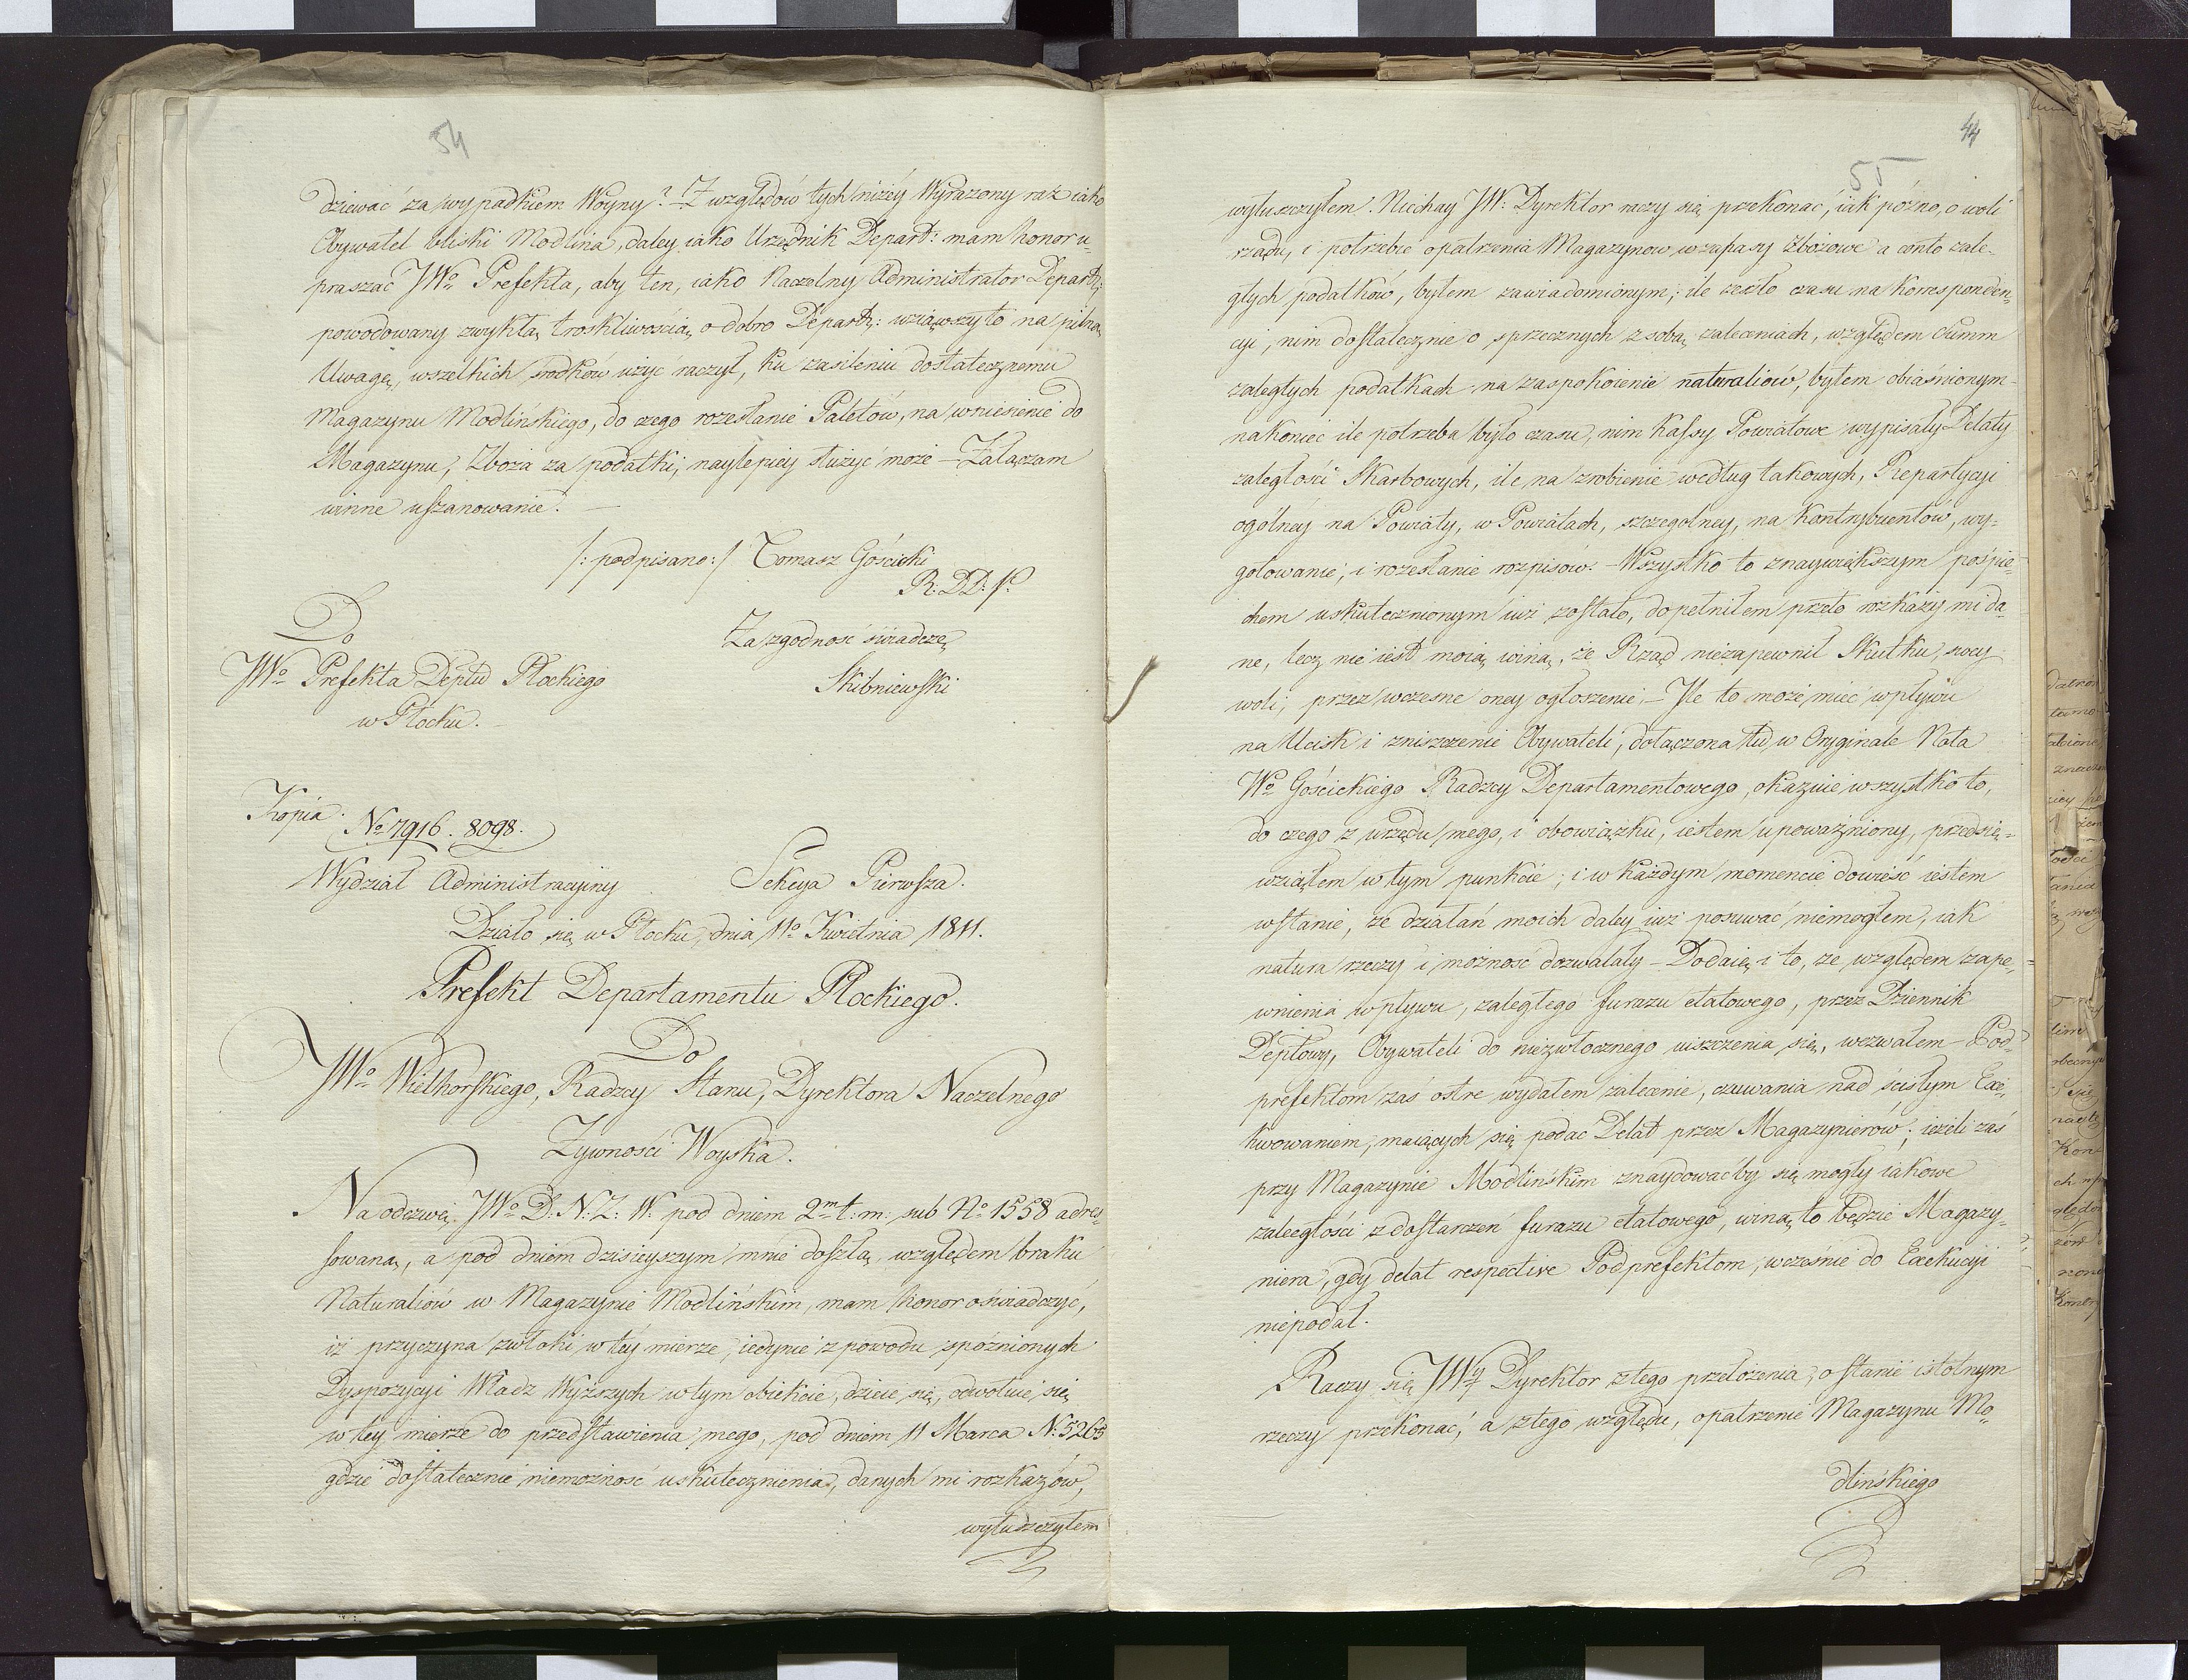 54
dziewać za wypadkiem Woyny? Z względów tych niżéy Wyrażony raz iako
Obywatel bliski Modlina, daley iako Urzędnik Depart: mam honor u-
praszać JWo Prefekta, aby ten, iako Naczelny Administrator Departu:
powodowany zwykłą troskliwością o dobro Departu: wziąwszy to na pilną
Uwagę, wszelkich srodków użyc raczył, ku zasileniu dostatecznemu
Magazynu Modlińskiego, do czego rozesłanie Paletów, na wniesienie do
Magazynu, Zboża za podatki, naylepiéy służyć może – Załączam
winne uszanowanie. –
/: podpisano :/ Tomasz Gościcki
R. D. D. P.
Do
JWo Prefekta Deptu Płockiego
w Płocku. –
Za zgodność świadczę
Skibniewski
Kopia.
No 7916. 8098.
Wydział Administracyiny Sekcya Pierwsza.
Działo się w Płocku, dnia 11o Kwietnia 1811.
Prefekt Departamentu Płockiego.
Do
JWo Wielhorskiego, Radzcy Stanu, Dyrektora Naczelnego
Żywności Woyska.
Na odezwę JWo D: N: Ż: W: pod dniem 2m t: m: sub No 1558 adres-
sowaną, a pod dniem dzisieyszym mnie doszłą, względem braku
Naturaliów w Magazynie Modlińskim, mam honor oświadczyć,
iż przyczyna zwłoki w téy mierze, iedynie z powodu spóźnionych
Dyspozycyi Władz Wyższych w tym obiekcie, dzieie się, odwołuię się
w tey mierze do przedstawienia mego, pod dniem 11 Marca N: 5265
gdzie dostatecznie niemożność uskutecznienia, danych mi rozkazów,
wyłuszczyłem
44
55
wyłuszczyłem. Niechay JW: Dyrektor raczy się przekonać, iak późno, o woli
rządu, i potrzebie opatrzenia Magazynow w zapasy Zbożowe a conto zale-
głych podatków, byłem zawiadomionym; ile zeszło czasu na korresponden-
cyi, nim dostatecznie o sprzecznych z sobą zaleceniach, względem Summ
zaległych podatkach na zaspokoienie naturaliów, byłem obiaśnionym –
nakoniec ile potrzeba było czasu, nim Kassy Powiatowe wypisały Delaty
zaległości Skarbowych, ile na zrobienie według takowych, Repartycyi
ogólney na Powiaty, w Powiatach, szczegolney, na Kontrybuentów, wy-
gotowanie, i rozesłanie rozpisów: – Wszystko to z naywiększym pośpie-
chem uskutecznionym iuż zostało, dopełniłem przeto rozkazy mi da-
ne, lecz nie iest moią winą, że Rząd niezapewnił Skutku swey
woli, przez wczesne oney ogłoszenie. – Ile to może mieć wpływu
na Ucisk i zniszczenie Obywateli, dołączona tu w Oryginale Nota
Wo Gościckiego Radzcy Departamentowego, okazuie wszystko to,
do czego z urzędu mego, i obowiązku, iestem upoważniony, przedsię-
wziąłem w tym punkcie; i w każdym momencie dowieść iestem
wstanie, że działań moich daley iuż posuwać niemogłem, iak
natura rzeczy i możność dozwalały – Dodaię i to, że względem zape-
wnienia wpływu, zaległego furazu etatowego, przez Dziennik
Deptowy, Obywateli do niezwłocznego uiszczenia się, wezwałem – Pod-
prefektom zaś ostre wydałem zalecenie, czuwania nad ścisłym Exe-
kwowaniem, maiących się podac Delat przez Magazynierów; ieżeli zaś
przy Magazynie Modlińskim znaydowaćby się mogły iakowe
zaległości z dostarczeń furazu etatowego, winą to będzie Magazy-
niera, gdy delat respective Podprefektom, wcześnie do Exekucyi
niepodał.
Raczy się JWy Dyrektor z tego przełożenia, o stanie istotnym
rzeczy przekonać, a z tego względu, opatrzenie Magazynu Mo-
dlińskiego